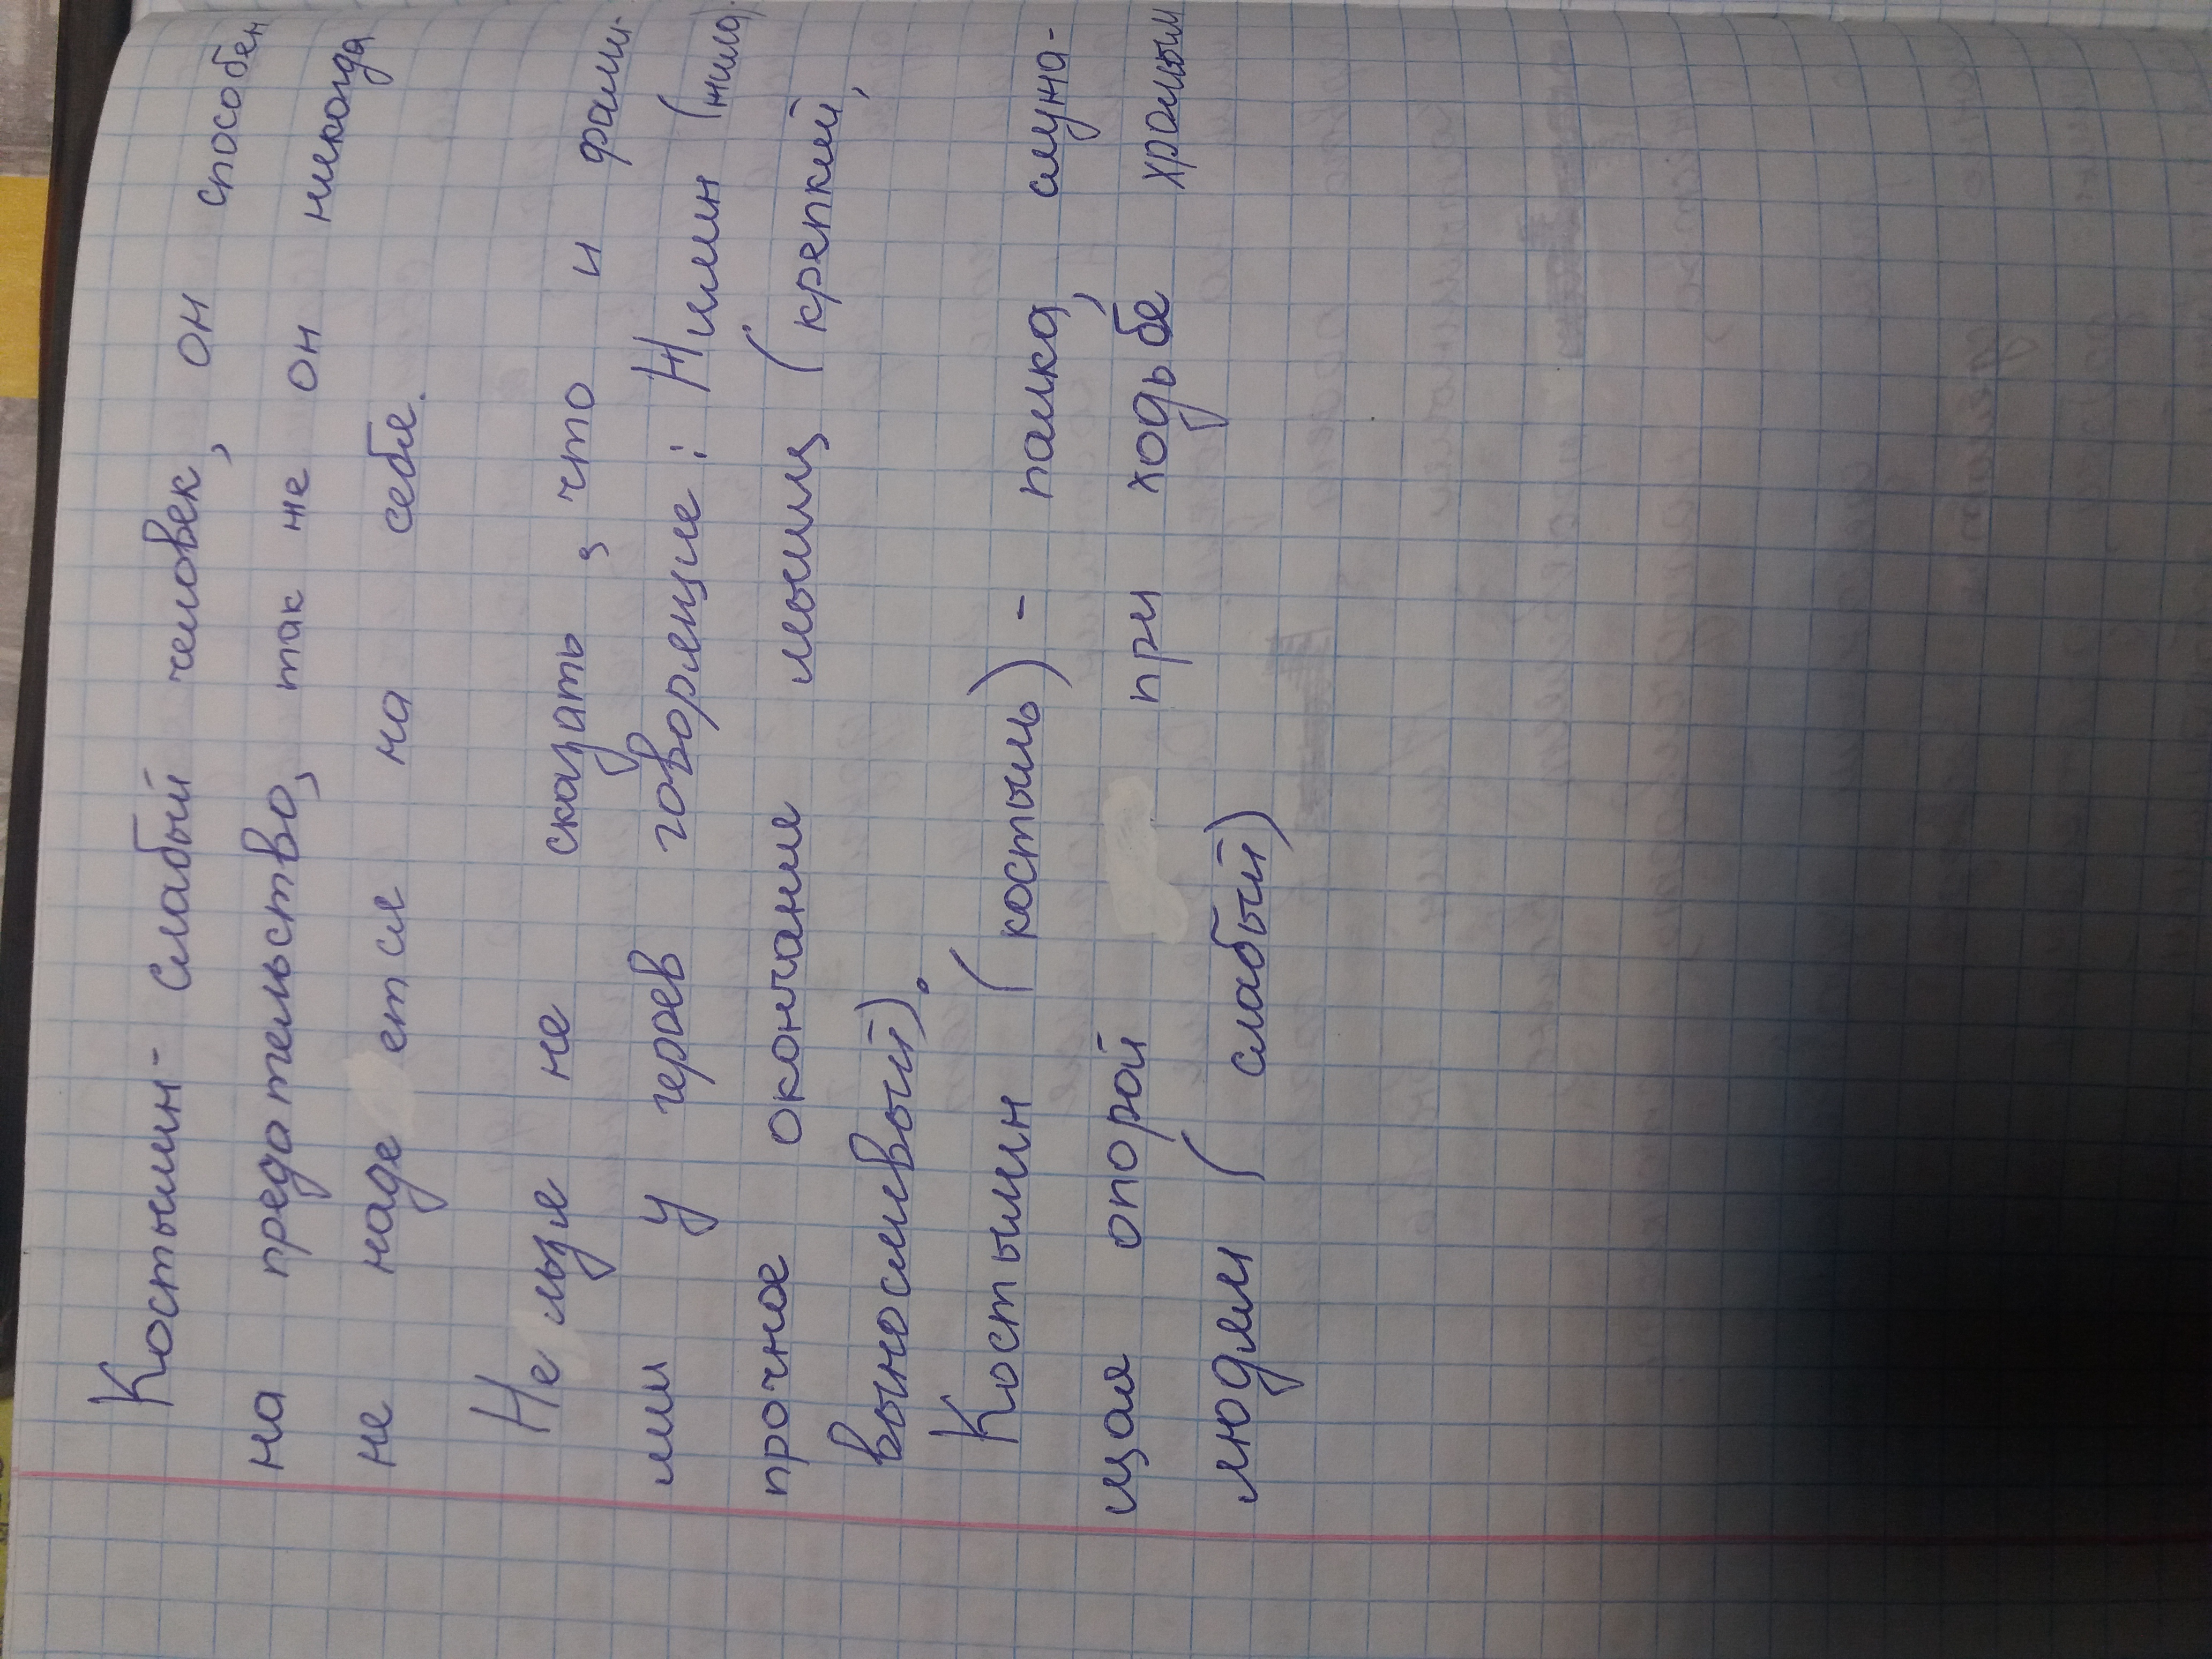 Костылин- слабый человек, он способен
на предательство, так же он никогда
не наде ется на себя.
Не льзя не сказать, что и фами-
лии у героев говорящие: Жилин (жила)
прочное окончание мышц (крепкий,
выносливый).
Костылин (костыль) - палка, служа-
щая опорой при ходьбе хромым
людям (слабый)